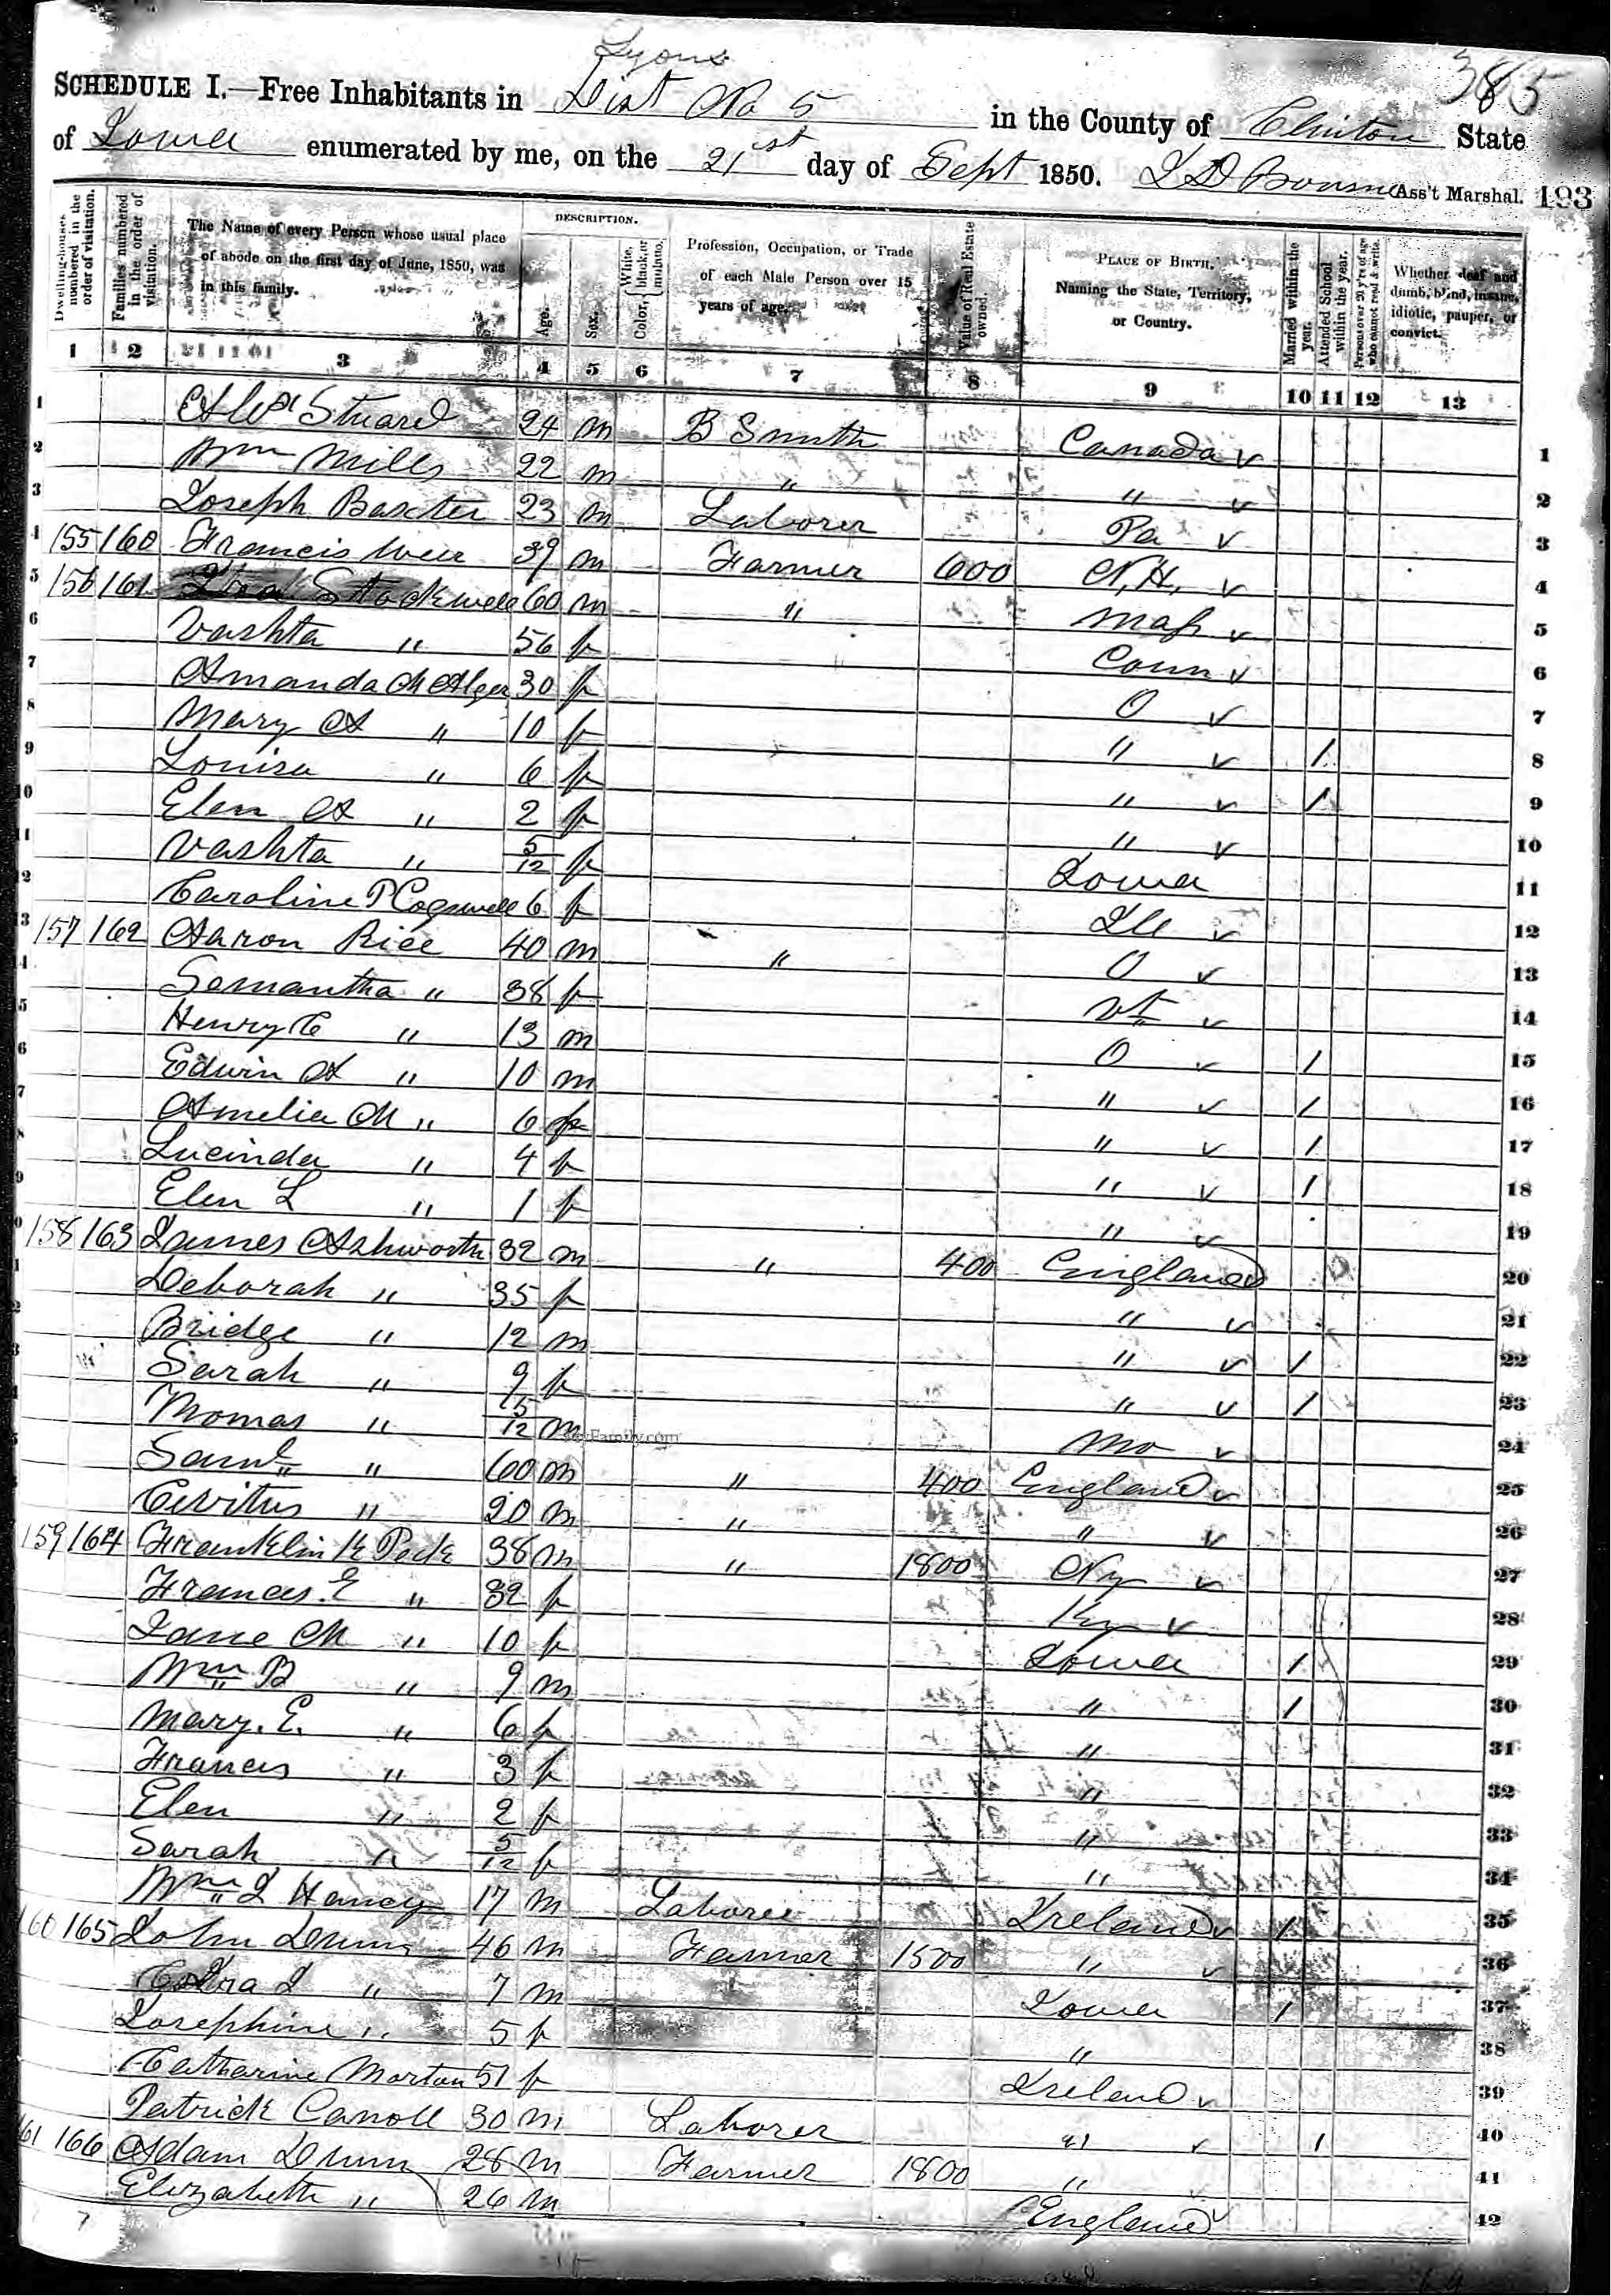 Lyons
385
SCHEDULE I.—Free Inhabitants in Dist No 5 in the County of Clinton State
of Iowa enumerated by me, on the 21st day of Sept 1850. Ass't Marshal. 193
Dwelling-houses numbered in the order of visitation.
Families numbered in the order of visitation.
The Name of every Person whose usual place of abode on the first day of June, 1850, was in this family.
DESCRIPTION.
Age.
Sex.
Color, { White, black, or mulatto.
Profession, Occupation, or Trade of each Male Person over 15 years of age.
Value of Real Estate owned.
PLACE OF BIRTH. Naming the State, Territory, or Country.
Married within the year.
Attended School within the year.
Persons over 20 y'rs of age who cannot read & write.
Whether deaf and dumb, blind, insane, idiotic, pauper, or convict.
1 2 3 4 5 6 7 8 9 10 11 12 13
1 Stuard 24 m B Smith Canada v 1
2 Wm Mills 22 m " " v 2
3 Joseph Baxter 23 m Laborer Pa v 3
4 155 160 Francis Weir 39 m Farmer 600 N,H, v 4
5 156 161 Stockwell 60 m " Mass v 5
6 Vashta " 56 f Conn v 6
7 Amanda M Alger 30 f O v 7
8 Mary A " 10 f " v 1 8
9 Louisa " 6 f " v 1 9
10 Elen A " 2 f " v 10
11 Vashta " 5/12 f Iowa 11
12 Caroline P Cogswell 6 f Ill v 12
13 157 162 Aaron Rice 40 m " O v 13
14 Semantha " 38 f Vt v 14
15 Henry C " 13 m O v 1 15
16 Edwin A " 10 m " v 1 16
17 Amelia M " 6 f " v 1 17
18 Lucinda " 4 f " v 1 18
19 Elen L " 1 f " v 19
158 163 James Ashworth 32 m " 400 England 20
Deborah " 35 f " v 21
Bridge " 12 m " v 1 22
Sarah " 9 f " v 1 23
Thomas " 5/12 m Mo v 24
Saml " 60 m " 400 England v 25
" 20 m " " v 26
159 164 Franklin K Peck 38 m " 1800 Ny v 27
Frances E " 32 f Ky v 28
Jane M " 10 f Iowa 1 29
Wm B " 9 m " 1 30
Mary. E. " 6 f " 31
Frances " 3 f " 32
Elen " 2 f " 33
Sarah " 5/12 f " 34
Wm J Haney 17 m Laborer Ireland v 1 35
160 165 John Dunn 46 m Farmer 1500 " v 36
" 7 m Iowa 1 37
Josephine " 5 f " 38
Catharine Morton 51 f Ireland v 39
Patrick Carroll 30 m Laborer " v 1 40
161 166 Adam Dunn 28 m Farmer 1800 " v 41
Elizabeth " 26 m England v 42